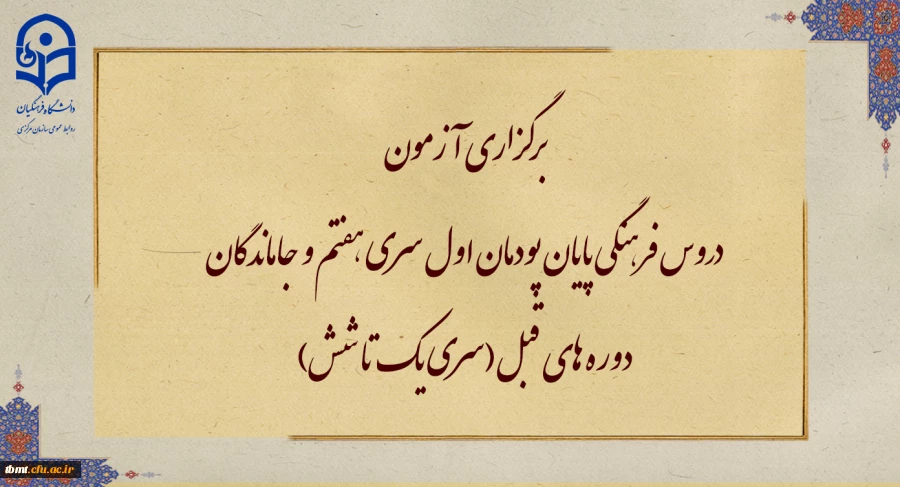 دانشگاه فرهنگیان
روابط عمومی سازمان مرکزی
برگزاری آزمون
دروس فرهنگی پایان پودمان اول سری هفتم و جاماندگان
دوره های قبل (سری یک تا شش)
tbmt.cfu.ac.ir